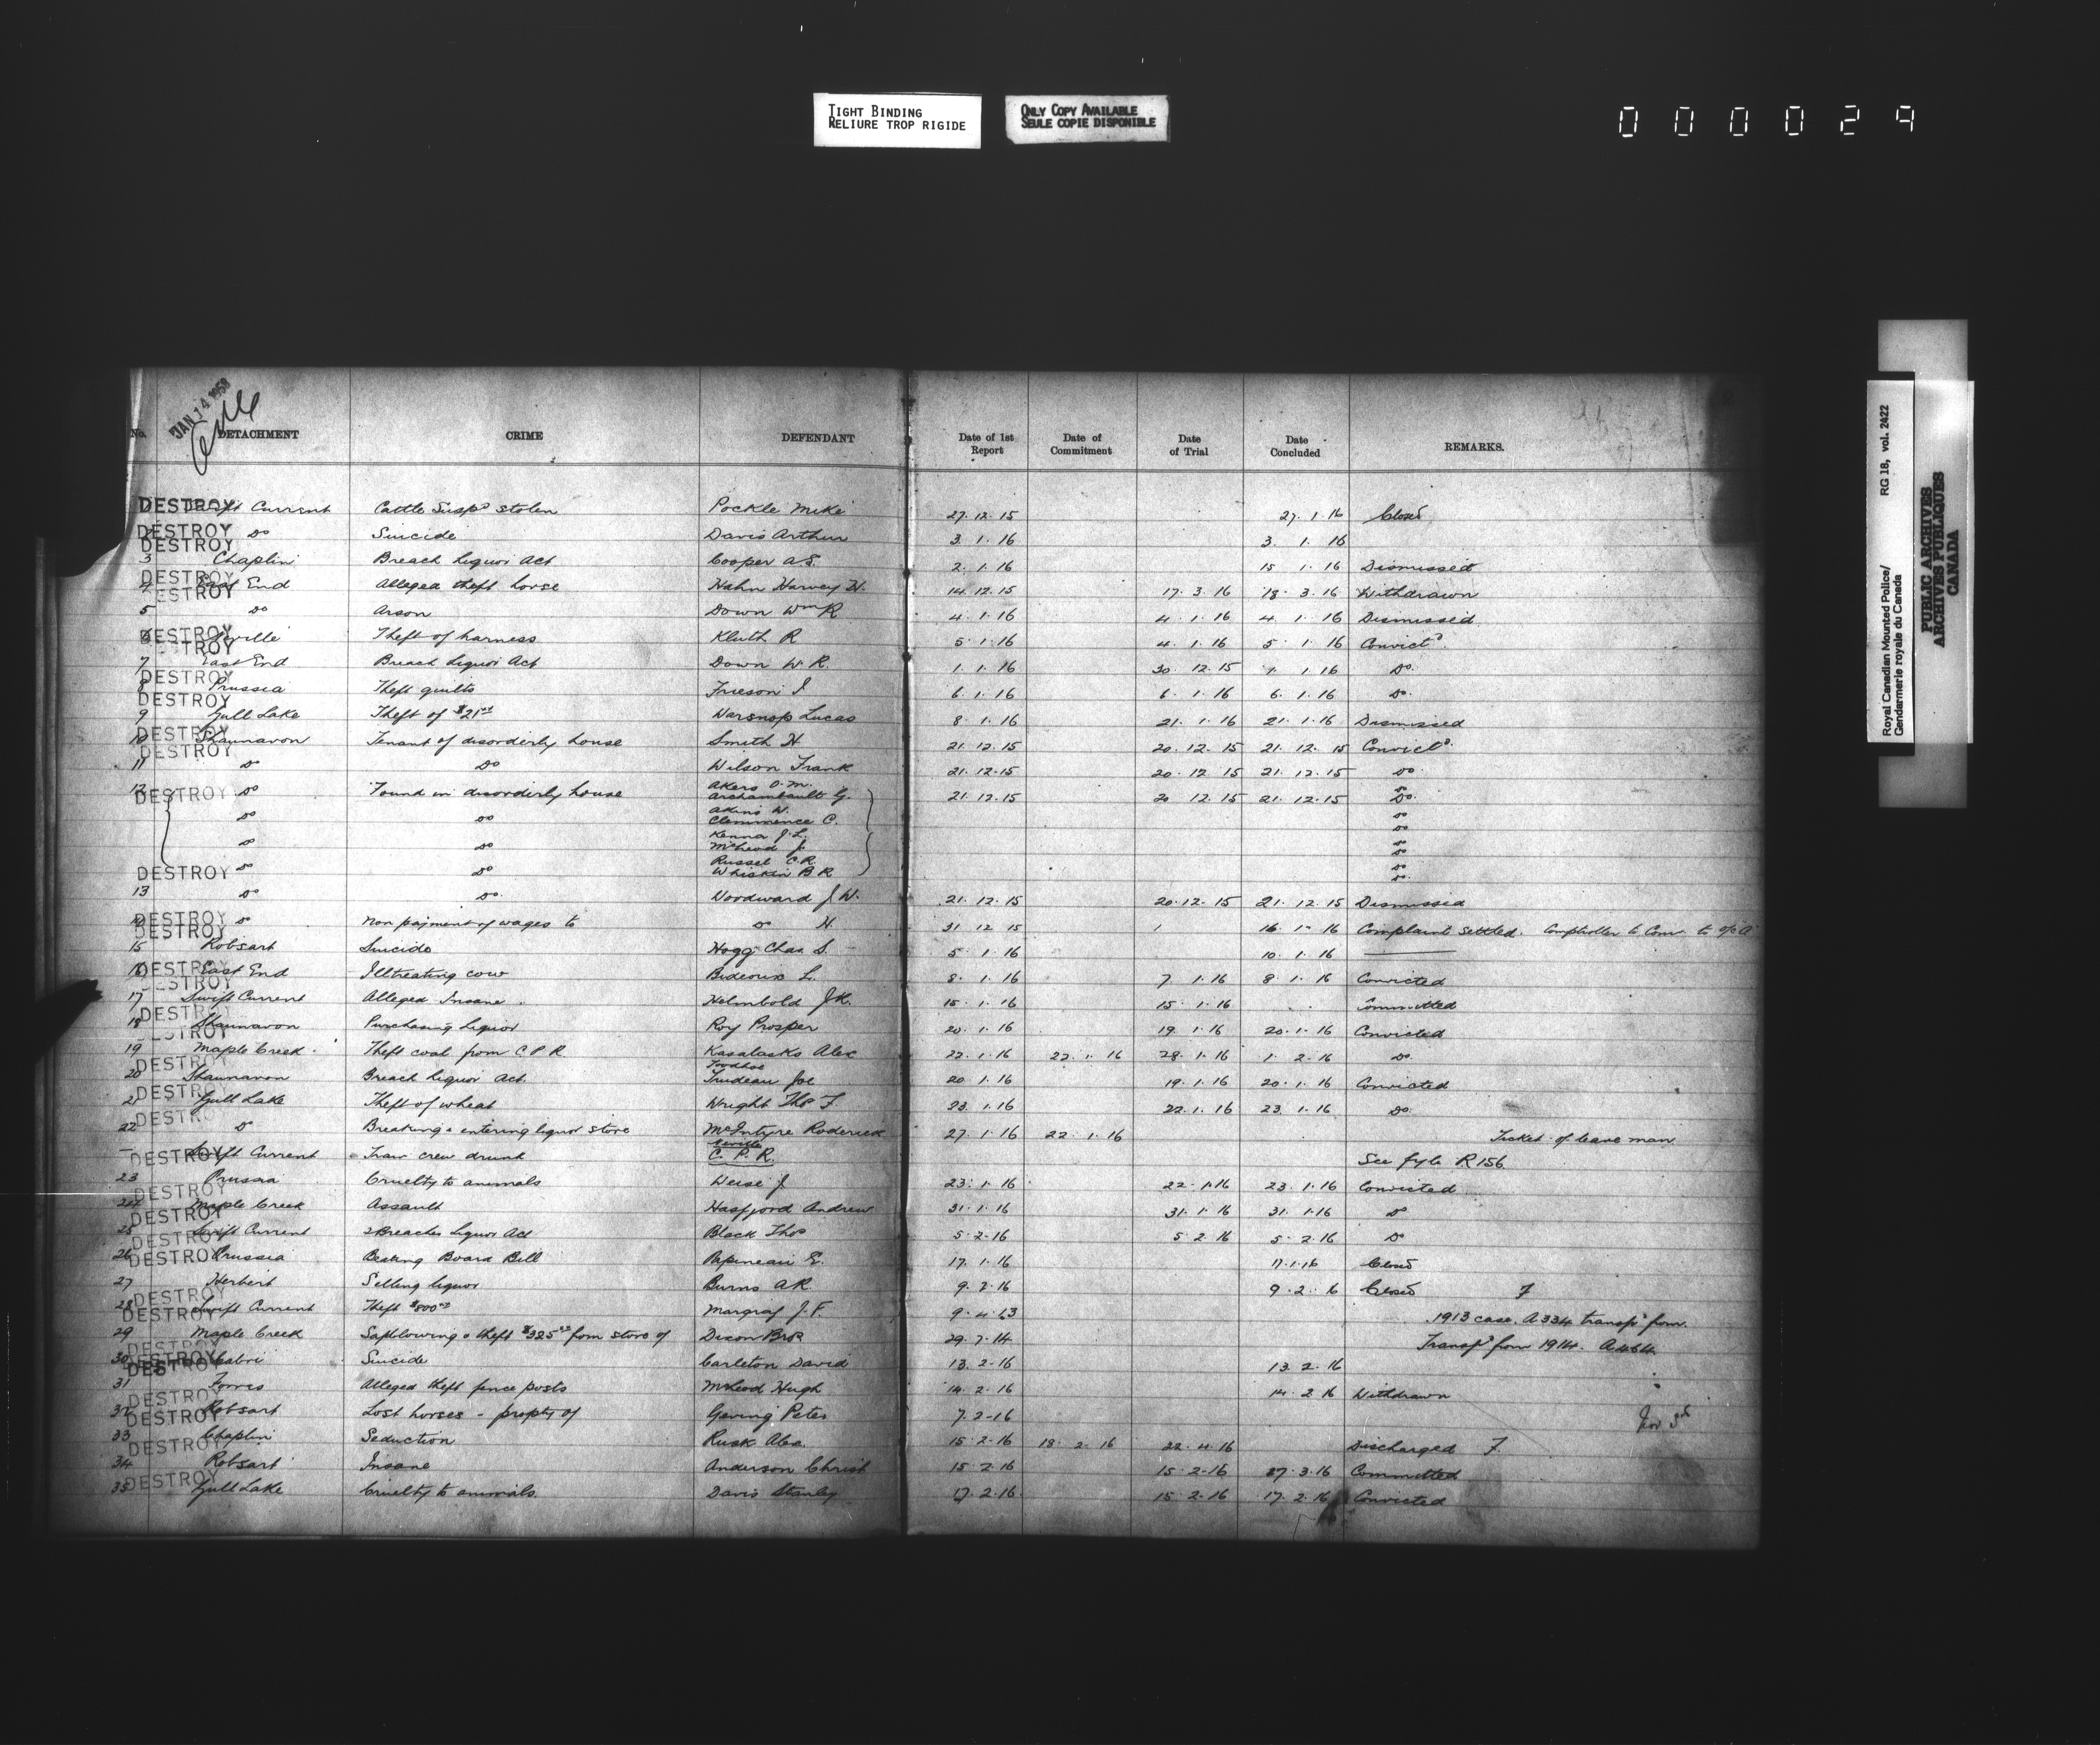 TIGHT BINDING
RELIURE TROP RIGIDE
ONLY COPY AVAILABLE
SEULE COPIE DISPONIBLE
000029
JAN 14 1958
No. DETACHMENT CRIME DEFENDANT Date of 1st Report Date of Commitment Date of Trial Date Concluded REMARKS.
DESTROY Swift Current Cattle Susp'd stolen Pockle Mike 27.12.15 27.1.16 Closed
DESTROY 2 Do Suicide Davis Arthur 3.1.16 3.1.16
DESTROY 3 Chaplin Breach Liquor Act Cooper A.S. 2.1.16 15 1.16 Dismissed
DESTROY 4 East End Alleged theft horse Hahn Harvey H. 14.12.15 17.3.16 18.3.16 Withdrawn
DESTROY 5 Do Arson Down Wm R 4.1.16 4.1.16 4.1.16 Dismissed
DESTROY 6 Neville Theft of harness Kluth R 5.1.16 4.1.16 5.1.16 Convict'd
DESTROY 7 East End Breach Liquor Act Down W R. 1.1.16 30 12.15 1.1.16 Do.
DESTROY 8 Prussia Theft quilts Frieson I 6.1.16 6.1.16 6.1.16 Do.
DESTROY 9 Gull Lake Theft of $21.00 Warsnop Lucas 8.1.16 21.1.16 21.1.16 Dismissed
DESTROY 10 Shaunavon Tenant of disorderly house Smith H 21.12.15 20.12.15 21.12.15 Convict'd.
DESTROY 11 Do Do Wilson Frank 21.12.15 20.12 15 21.12.15 Do.
DESTROY 12 Do Found in disorderly house Akers O.M. 21.12.15 20 12.15 21.12.15 Do
Archambault G. Do.
Do Do Akins W. Do
Clemmence C. Do
Do Do Kenna J.L. Do
McLeod J. Do
Do Do Russel C.R. Do
DESTROY Whiskin B R Do.
13 Do Do. Woodward J.W. 21.12.15 20.12.15 21.12.15 Dismissed
DESTROY 14 Do Non payment of wages to Do H. 31 12 15 16 1. 16 Complaint settled. Comptroller to Com. to
DESTROY 15 Robsart Suicide Hogg Chas. S. 5.1.16 10.1.16
DESTROY 16 East End Illtreating cow Bideoux L. 8.1.16 7 1.16 8.1.16 Convicted
DESTROY 17 Swift Current Alleged Insane. Helmbold J.K. 15.1.16 15.1.16 Committed
DESTROY 18 Shaunavon Purchasing Liquor Roy Prosper 20.1.16 19.1.16 20.1.16 Convicted
DESTROY 19 Maple Creek Theft coal from C P R Kasalasks Alex 22.1.16 22.1.16 28.1.16 1.2.16 Do
DESTROY 20 Shaunavon Breach Liquor Act. Trudeau Joe 20 1.16 19.1.16 20.1.16 Convicted
DESTROY 21 Gull Lake Theft of wheat Wright Thos F. 23.1.16 22.1.16 23.1.16 Do.
DESTROY 22 Do Breaking & entering liquor store McIntyre Roderick 27.1.16 22.1.16 Ticket of leave man
Neville
DESTROY — Swift Current Train crew drunk C. P. R. See fyle R 156
DESTROY 23 Prussia Cruelty to animals Weise J. 23.1.16 22.1.16 23.1.16 Convicted
DESTROY 24 Maple Creek Assault Hasfjord Andrew 31.1.16 31.1.16 31.1.16 Do
DESTROY 25 Swift Current 2 Breaches Liquor Act Black Thos 5.2.16 5.2.16 5.2.16 Do
DESTROY 26 Prussia Beating Board Bill Papineau E. 17.1.16 17.1.16 Closed
DESTROY 27 Herbert Selling liquor Burns A R. 9.2.16 9.2.16 Closed F
DESTROY 28 Swift Current Theft $800.00 Margraf J.F. 9.4.13 1913 case. A 334 transf'd from.
DESTROY 29 Maple Creek Safeblowing & theft $325.00 from store of Dixon Bros 29.7.14 Transf'd from 1914. A 464
DESTROY 30 Cabri Suicide Carleton David 13.2.16 13.2.16
DESTROY 31 Forres Alleged theft fence posts McLeod Hugh 14.2.16 14.2.16 Withdrawn
DESTROY 32 Robsart Lost horses - property of Geving Peter 7.2.16
DESTROY 33 Chaplin Seduction Rusk Alex. 15.2.16 18.2.16 22.4.16 Discharged F.
34 Robsart Insane Anderson Christ 15.2.16 15.2.16 27.3.16 Committed
DESTROY 35 Gull Lake Cruelty to animals. Davis Stanley 17.2.16 15.2.16 17.2.16 Convicted
Royal Canadian Mounted Police/
Gendarmerie royale du Canada
RG 18, vol. 2422
PUBLIC ARCHIVES
ARCHIVES PUBLIQUES
CANADA